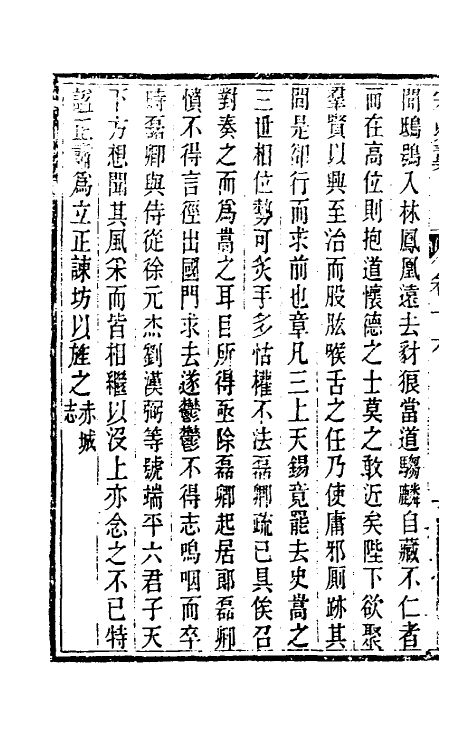 間鴟鴞入林鳳凰遠去豺狼當道騶麟自藏不仁者
而在高位則抱道懷德之士莫之敢近矣陛下欲聚
羣賢以興至治而股肱喉舌之任乃使庸邪厠跡其
間是卻行而求前也章凡三上天錫竟罷去史嵩之
三世相位勢可炙手多怙權不法磊卿疏已具俟召
對奏之而爲嵩之耳目所得亟除磊卿起居郎磊卿
憤不得言徑出國門求去遂鬱鬱不得志嗚咽而卒
時磊卿與侍從徐元杰劉漢弼等號端平六君子天
下方想聞其風采而皆相繼以沒上亦念之不已特
諡正肅爲立正諫坊以旌之赤城志